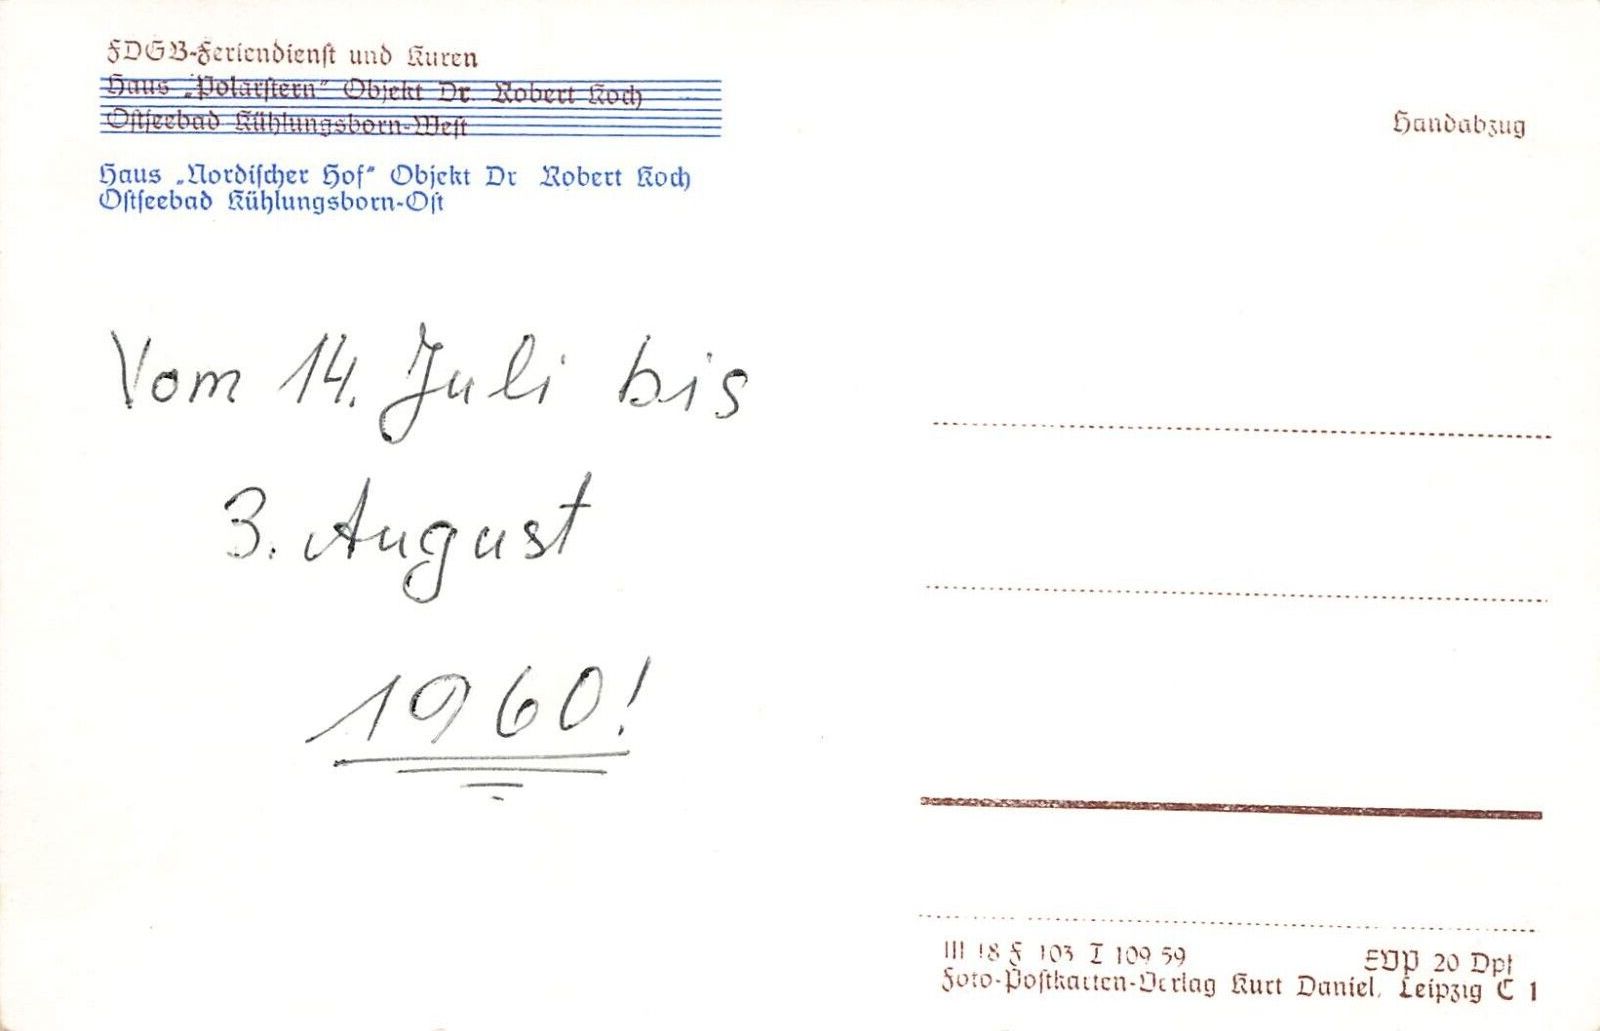 FDGB-Feriendienst und Kuren
Haus „Polarstern" Objekt Dr. Robert Koch
Ostseebad Kühlungsborn-West
Haus „Nordischer Hof" Objekt Dr Robert Koch
Ostseebad Kühlungsborn-Ost
Handabzug
Vom 14. Juli bis
3. August
1960!
III 18 F 103 I 109 59
EVP 20 Dpf
Foto-Postkarten-Verlag Kurt Daniel, Leipzig C 1